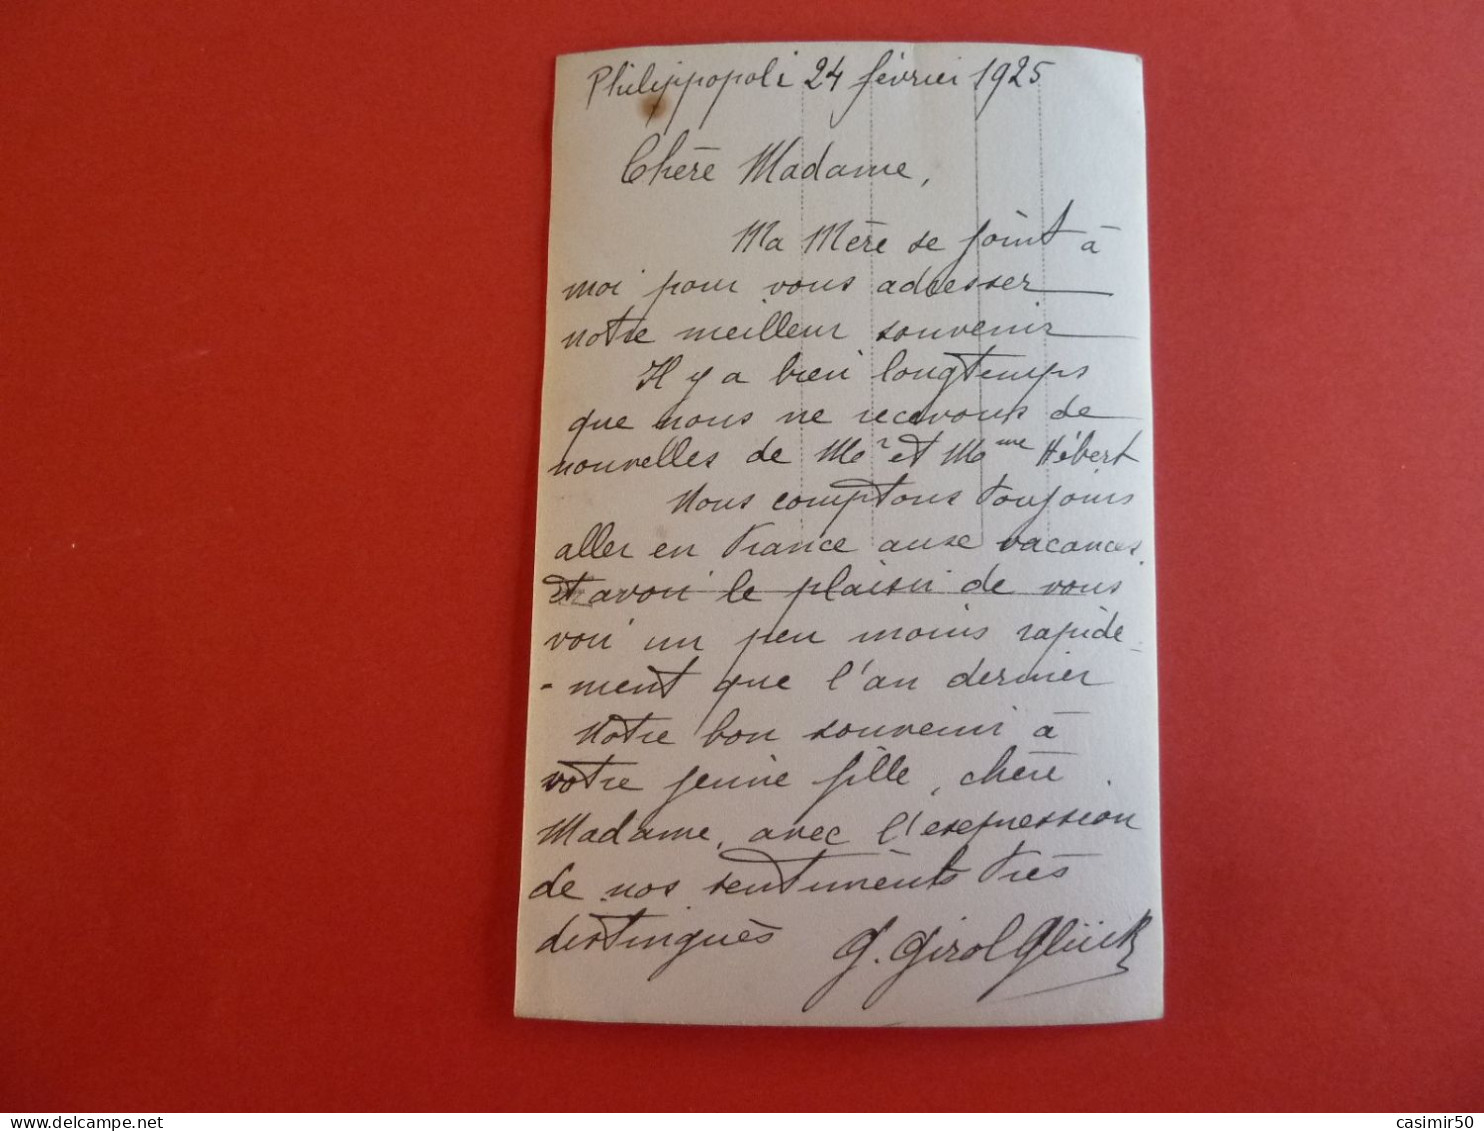 Philippopoli 24 février 1925
Chère Madame,
Ma Mère se joint à
moi pour vous adresser
notre meilleur souvenir
Il y a bien longtemps
que nous ne recevons de
nouvelles de Mr et Mme Hébert
Nous comptons toujours
aller en France aux vacances
et avoir le plaisir de vous
voir un peu moins rapide-
-ment que l'an dernier
Notre bon souvenir à
votre jeune fille, chère
Madame, avec l'expression
de nos sentiments très
distingués G. Girol Glück
delcampe.net
casimir50